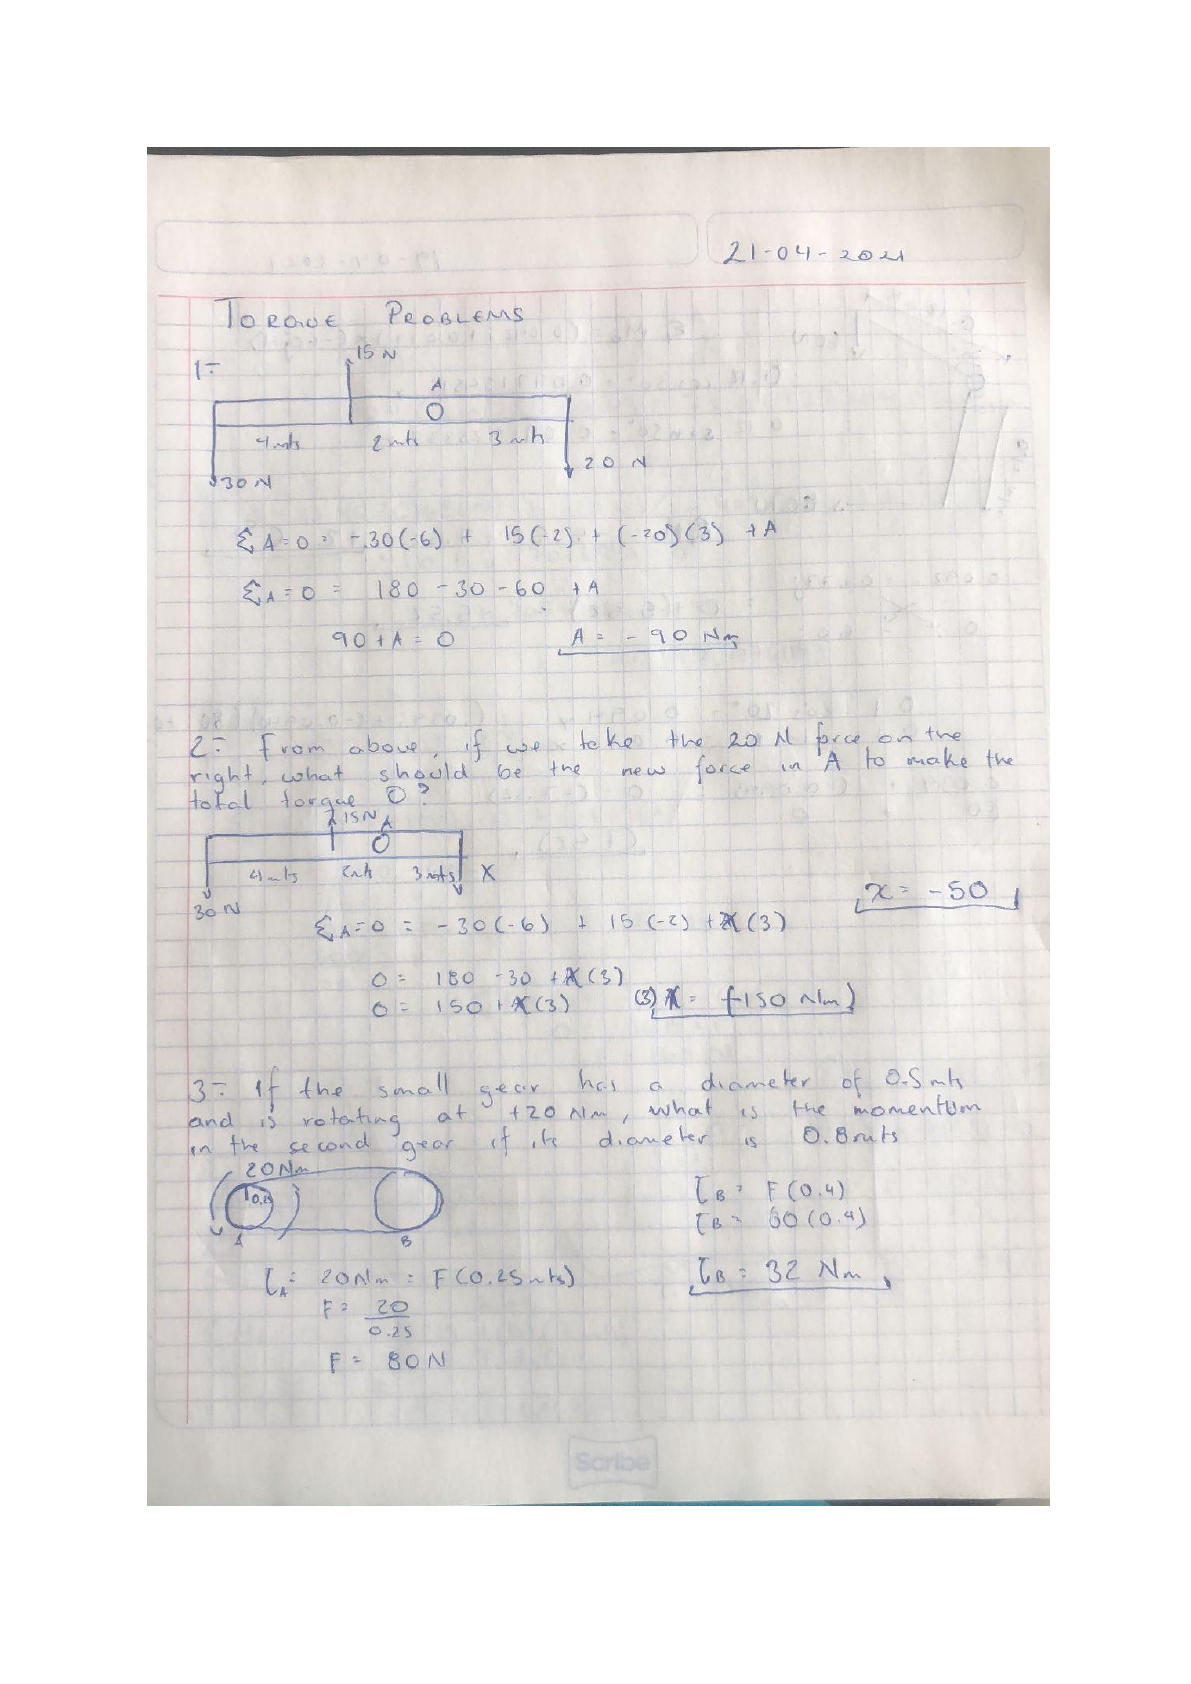 21-04-2021
TORQUE PROBLEMS
1=
15 N
A
4mts 2mts 3mts
30 N
20 N
Σ A=0 = -30(-6) + 15(-2) + (-20)(3) + A
Σ A=0 = 180 - 30 - 60 + A
90 + A = 0 A = - 90 Nm
2= From above, if we take the 20 N force on the
right, what should be the new force in A to make the
total torque 0?
15N A
4mts 2mts 3mts X
30 N
x = -50
Σ A=0 = -30(-6) + 15(-2) + X(3)
0 = 180 - 30 + X(3)
0 = 150 + X(3) (3) X = (-150 Nm)
3= If the small gear has a diameter of 0.5mts
and is rotating at +20 Nm, what is the momentum
in the second gear if its diameter is 0.8mts
20Nm
A B
τB = F(0.4)
τB = 80(0.4)
τB = 32 Nm
τA = 20Nm = F(0.25mts)
F = 20
0.25
F = 80N
Scribe